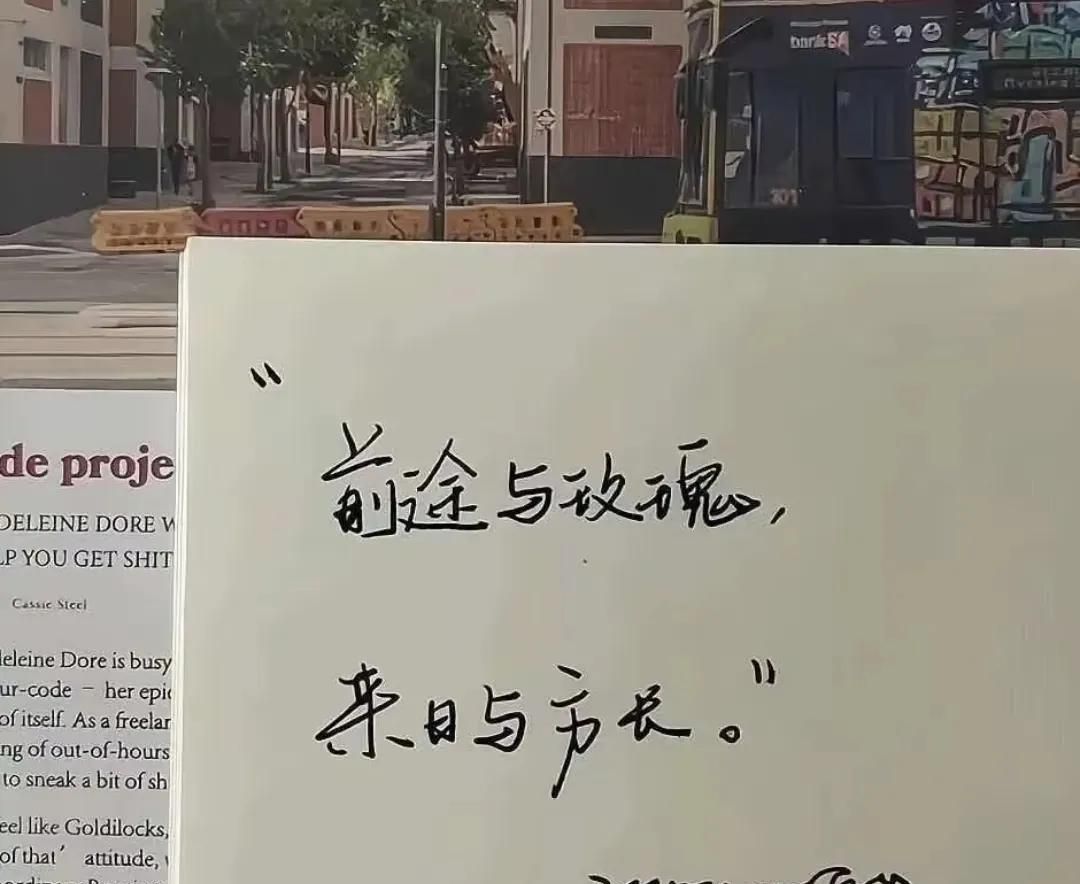 bankSA
201
"前途与玫瑰,
来日与方长。"
de proje
DELEINE DORE W
LP YOU GET SHIT
Cassie Steel
eleine Dore is busy
ur-code – her epic
of itself. As a freelar
ng of out-of-hours
to sneak a bit of sh
eel like Goldilocks,
of that' attitude,